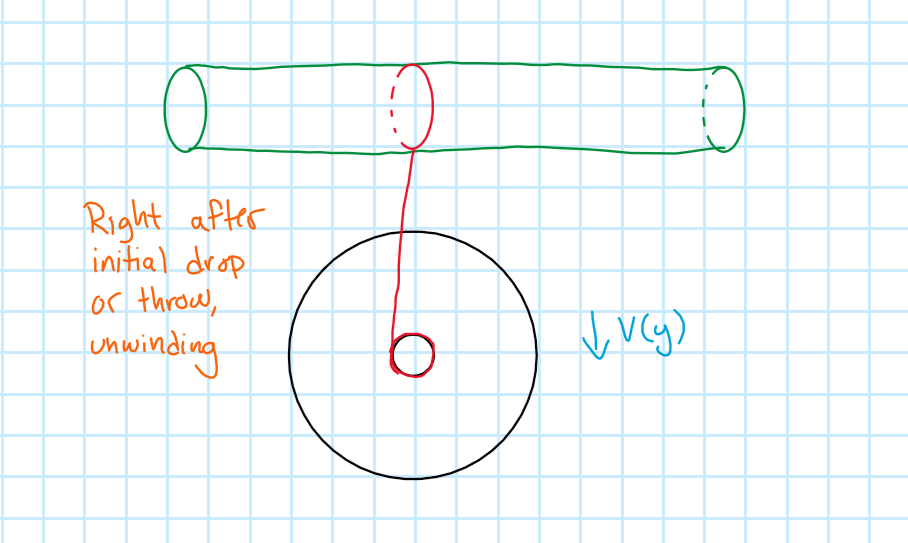 Right after
initial drop
or throw,
unwinding
↓ V(y)